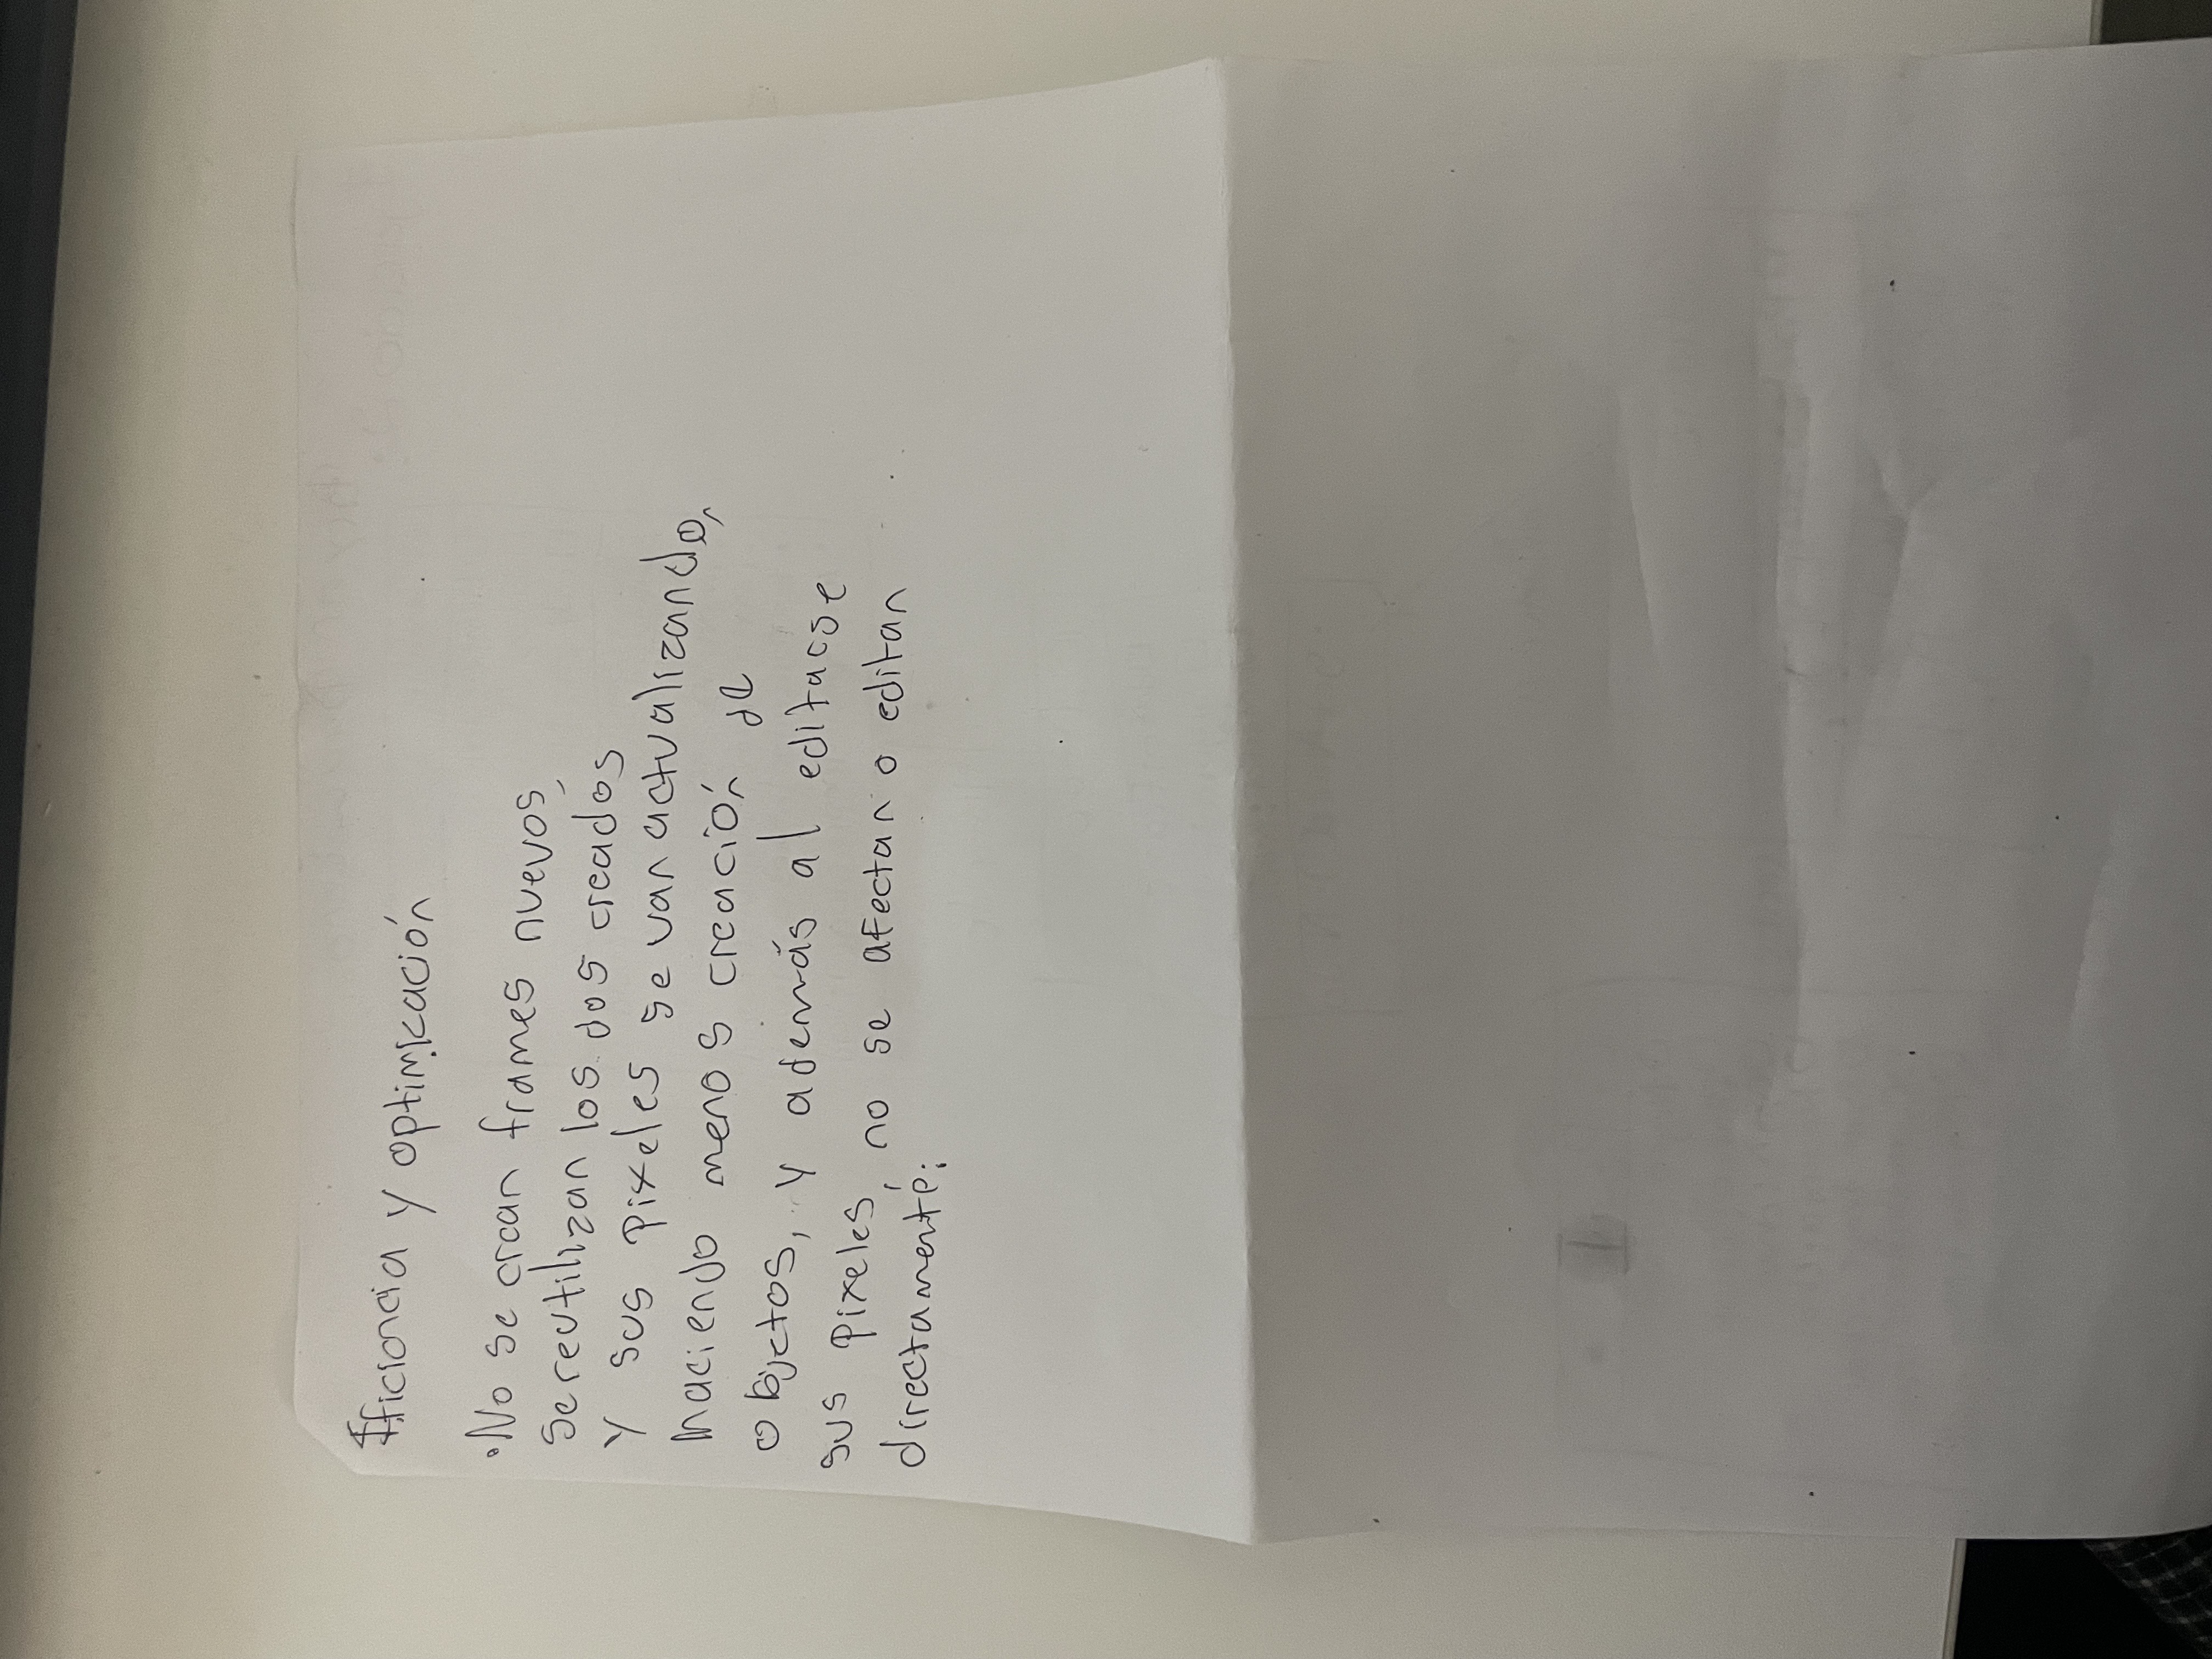 Eficiencia y optimización
•No se crean frames nuevos,
se reutilizan los dos creados
Y sus pixeles se van actualizando,
haciendo menos creación de
objetos, y además al editarse
sus pixeles, no se afectan o editan
directamente.